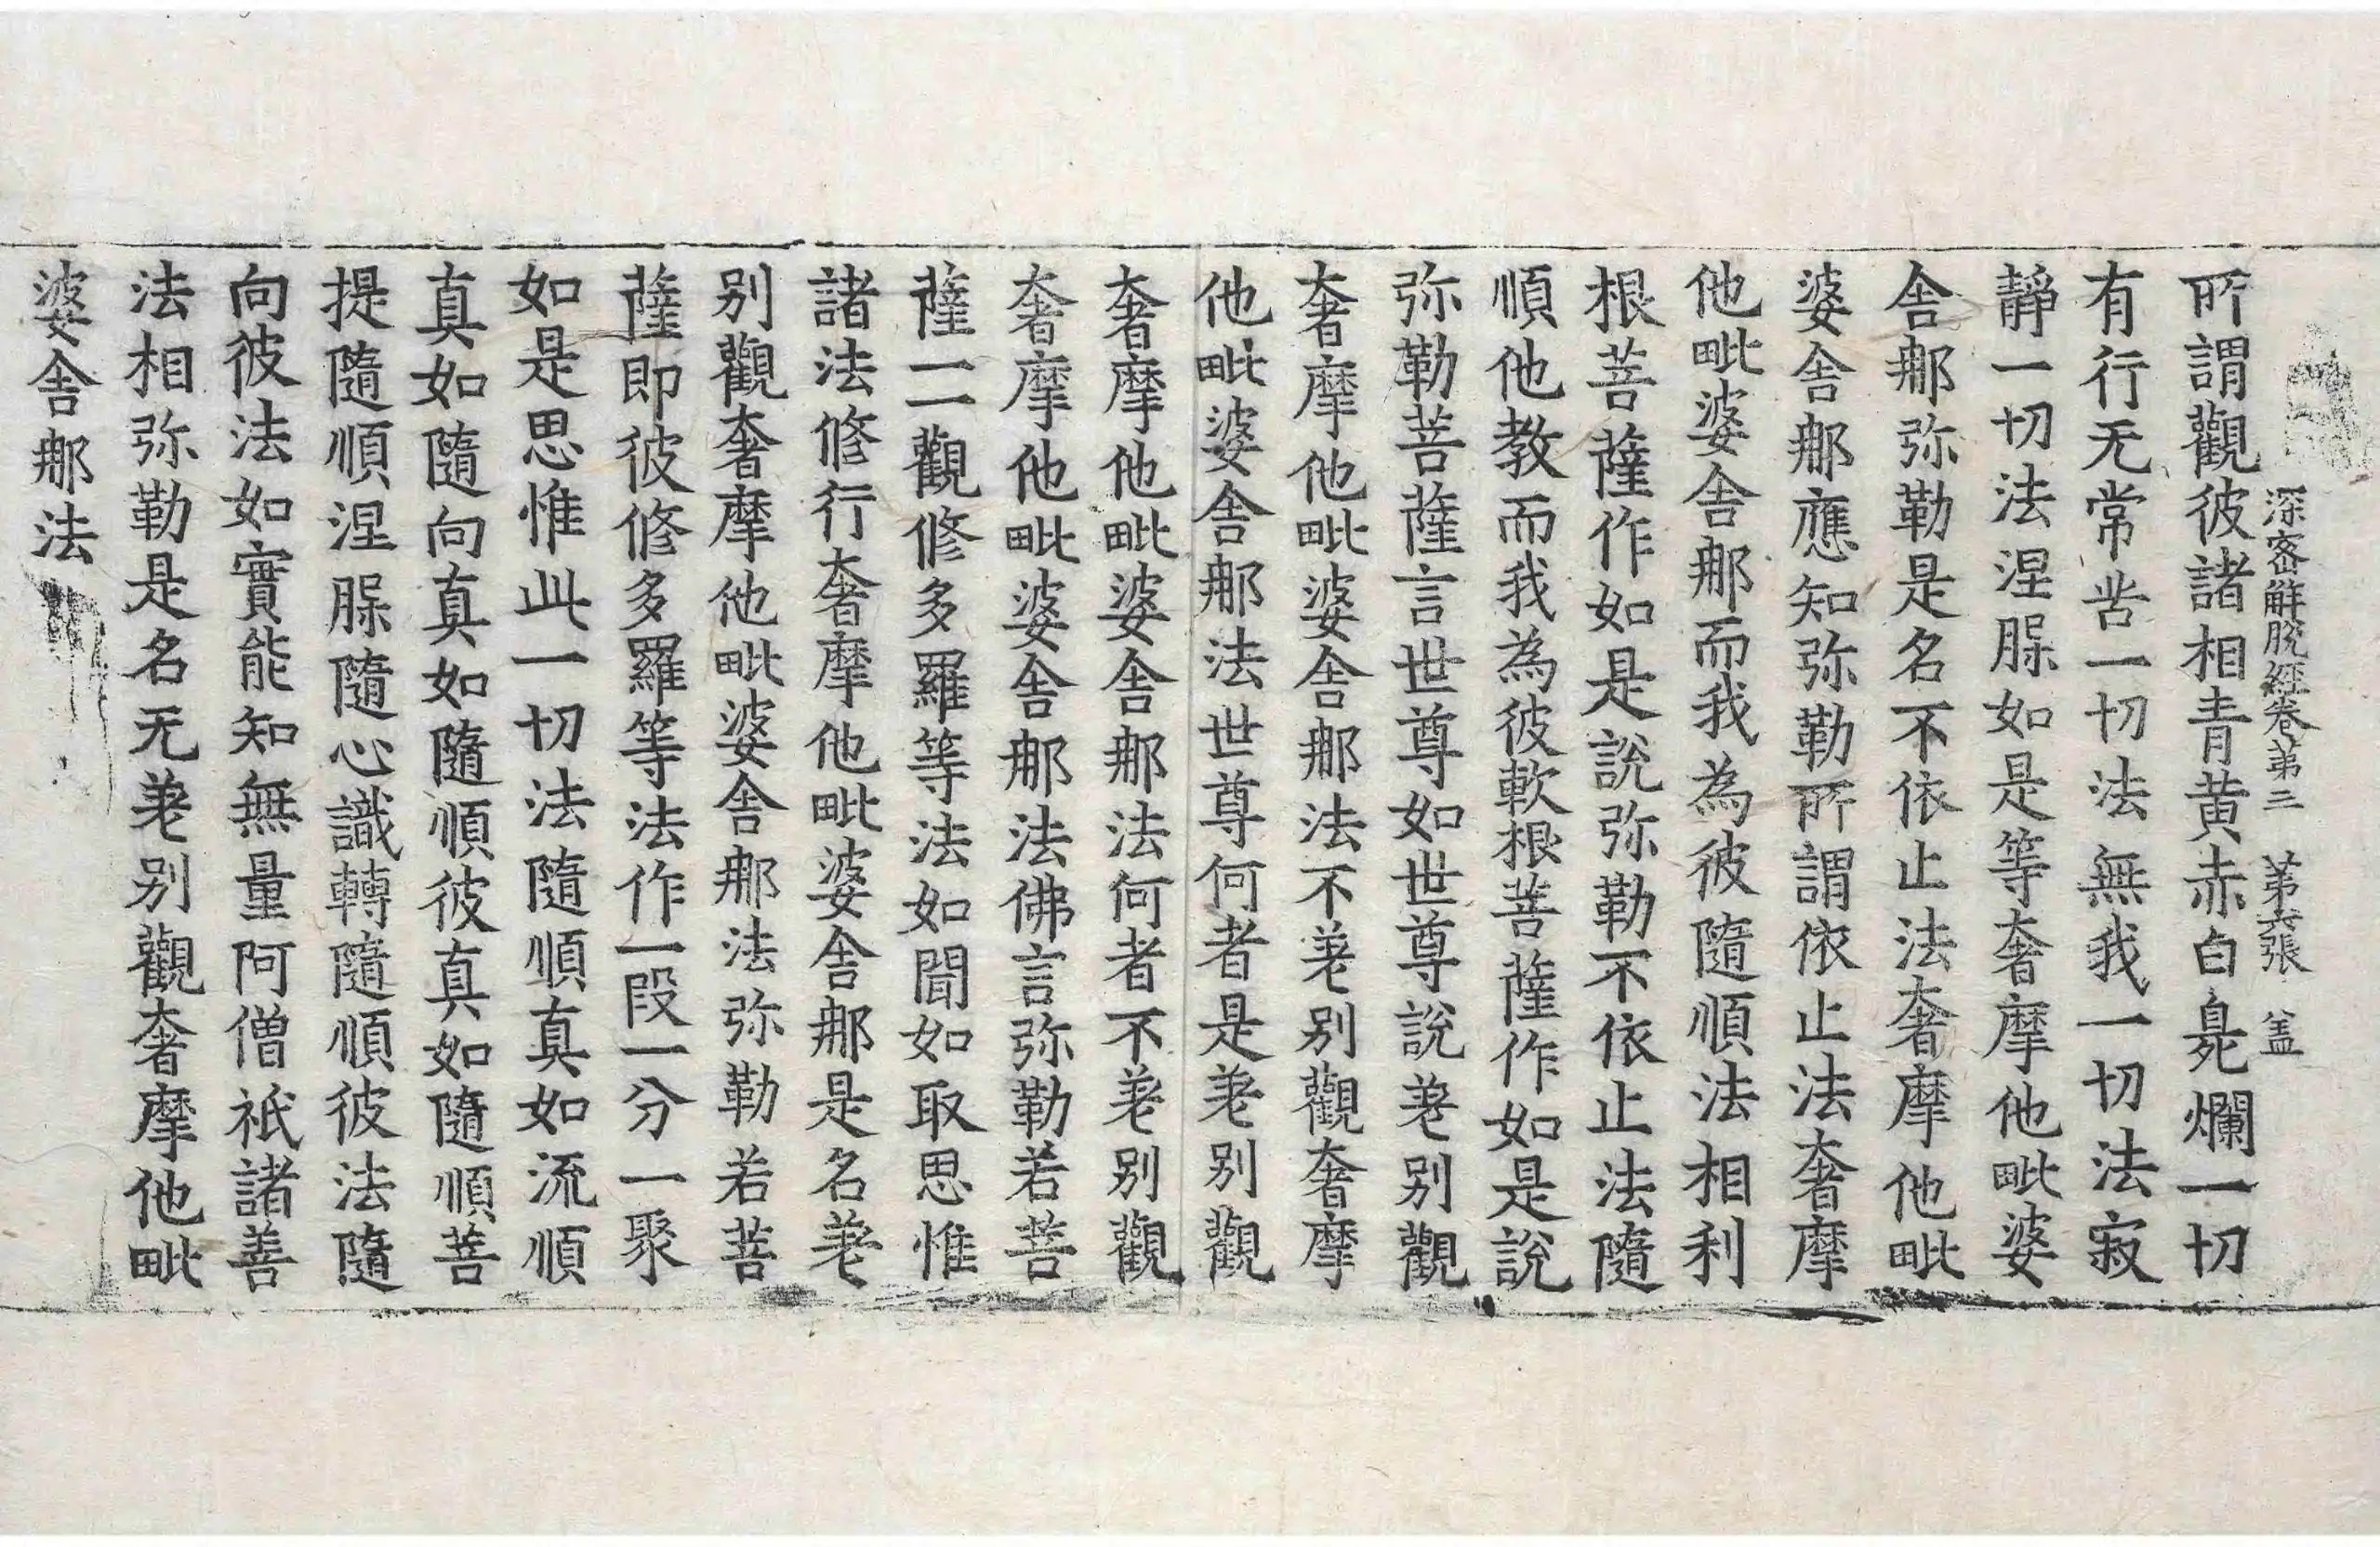 深密解脫經卷第三 第六張 盖
所謂觀彼諸相青黃赤白𣦸爛一切
有行无常苦一切法無我一切法寂
靜一切法涅槃如是等奢摩他毗婆
舍那弥勒是名不依止法奢摩他毗
婆舍那應知弥勒所謂依止法奢摩
他毗婆舍那而我為彼隨順法相利
根菩薩作如是說弥勒不依止法隨
順他教而我為彼軟根菩薩作如是說
弥勒菩薩言世尊如世尊說差別觀
奢摩他毗婆舍那法不差別觀奢摩
他毗婆舍那法世尊何者是差別觀
奢摩他毗婆舍那法何者不差別觀
奢摩他毗婆舍那法佛言弥勒若菩
薩一一觀修多羅等法如聞如取思惟
諸法修行奢摩他毗婆舍那是名差
別觀奢摩他毗婆舍那法弥勒若菩
薩即彼修多羅等法作一段一分一聚
如是思惟此一切法隨順真如流順
真如隨向真如隨順彼真如隨順菩
提隨順涅槃隨心識轉隨順彼法隨
向彼法如實能知無量阿僧祇諸善
法相弥勒是名无差別觀奢摩他毗
婆舍那法